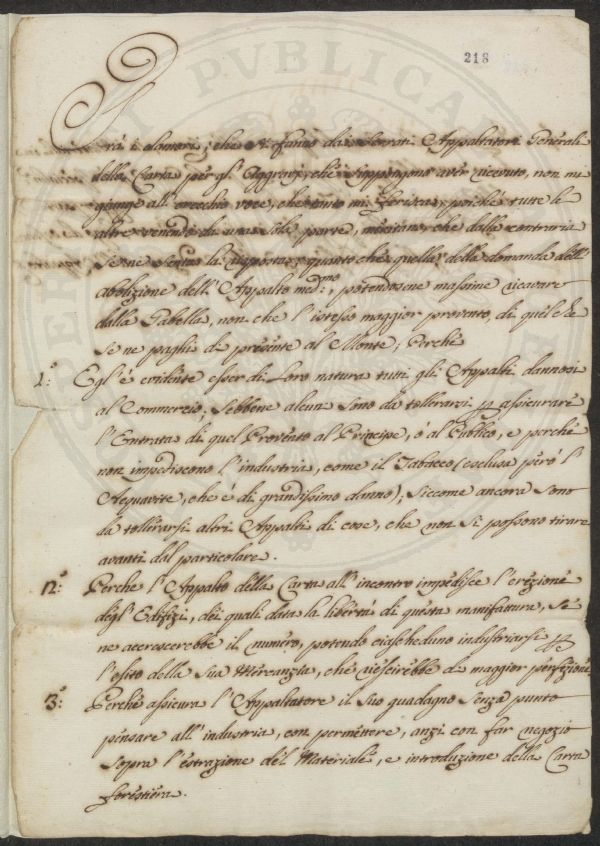 218
Frà i clamori, che si fanno dai Signori Appaltatori Generali
della Carta per gl' Aggravj, che suppongono aver ricevuto, non mi
giunge all' orecchio voce, che tanto mi ferisca, poiche tutte le
altre venendo da una sola parte, meritano, che dalla contraria
se ne senta la risposta, quanto che quella della domanda dell'
abolizione dell' Appalto med.mo, potendosene massime ricavare
dalla Gabella, non che l' istesso maggior provento, di quel che
se ne paghi di presente al Monte; Perchè
1.° Egl' è evidente esser di Loro natura tutti gli Appalti dannosi
al Commercio; Sebbene alcuni sono da tollerarsi p assicurare
l' Entrata di quel Provento al Principe, ò al Publico, e perchè
non impediscono l' industria, come il Tabacco (esclusa però l'
Acquavite, che è di grandissimo danno); siccome ancora sono
da tollerarsi altri Appalti di cose, che non si possono tirare
avanti dal particolare.
2.° Perche l' Appalto della Carta all' incontro impedisce l' erezione
degl' Edifizj, dei quali data la libertà di questa manifattura, se
ne accrescerebbe il numero, potendo ciascheduno industriarsi p
l' esito della sua Mercanzia, che riescirebbe di maggior perfezione
3.° Perchè assicura l' Appaltatore il suo guadagno senza punto
pensare all' industria, con permettere, anzi con far negozio
sopra l' estrazione del Materiale, e introduzione della Carta
forestiera.